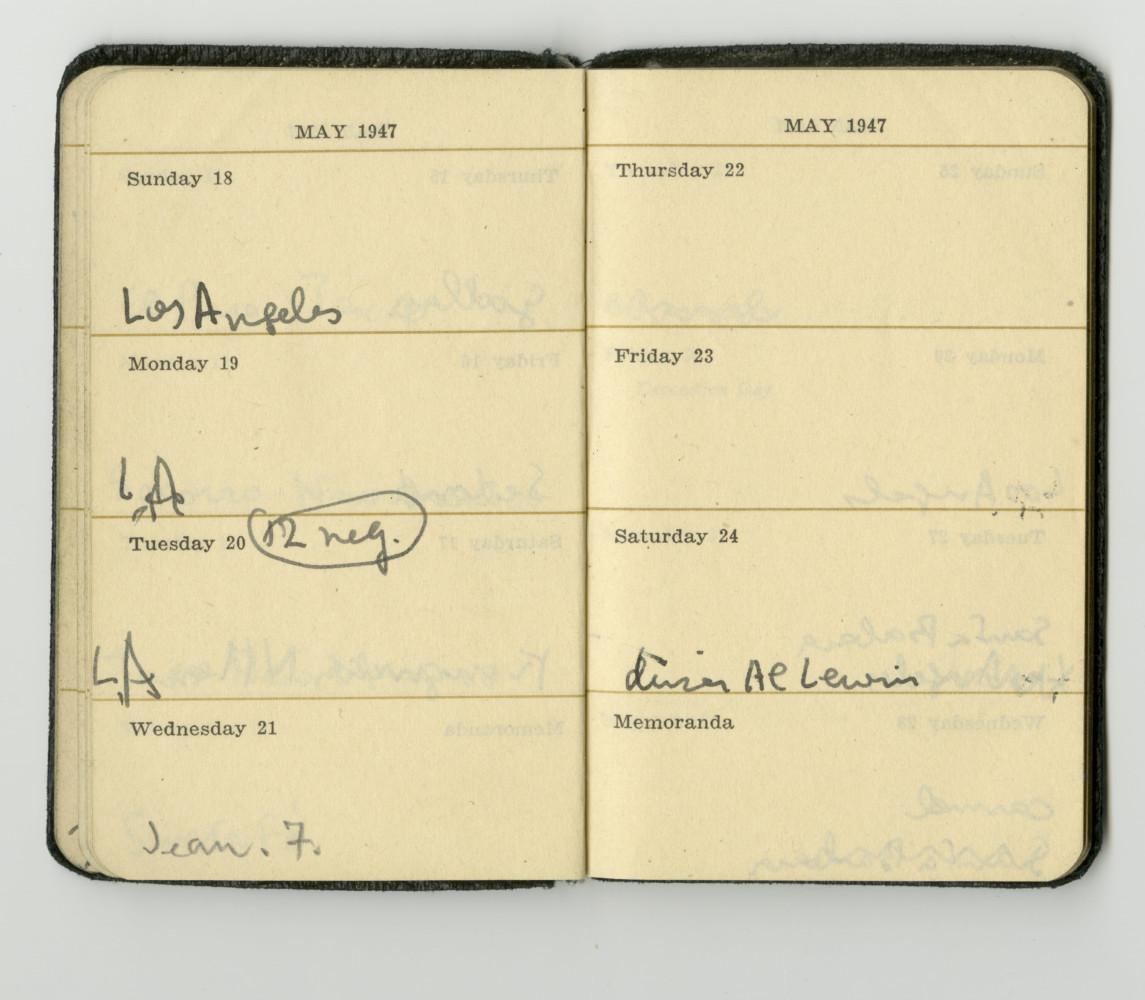 MAY 1947
Sunday 18
Los Angeles
Monday 19
LA
Tuesday 20
12 neg.
LA
Wednesday 21
Jean. 7.
MAY 1947
Thursday 22
Friday 23
Saturday 24
Al Lewin
Memoranda